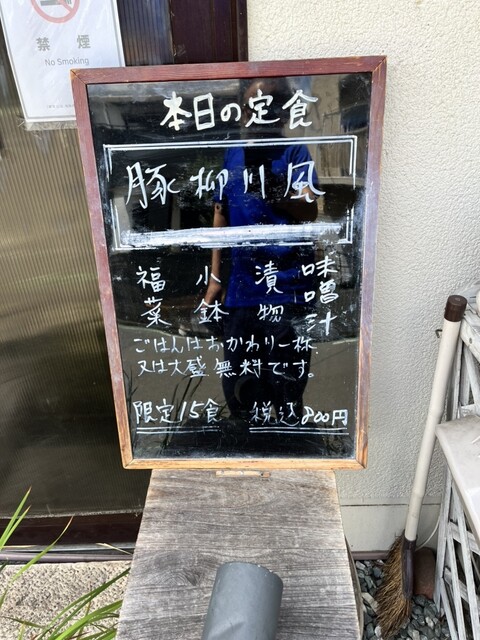 禁煙
No Smoking
本日の定食
豚柳川風
福菜 小鉢 漬物 味噌汁
ごはんはおかわり一杯
又は大盛無料です。
限定15食 税込800円